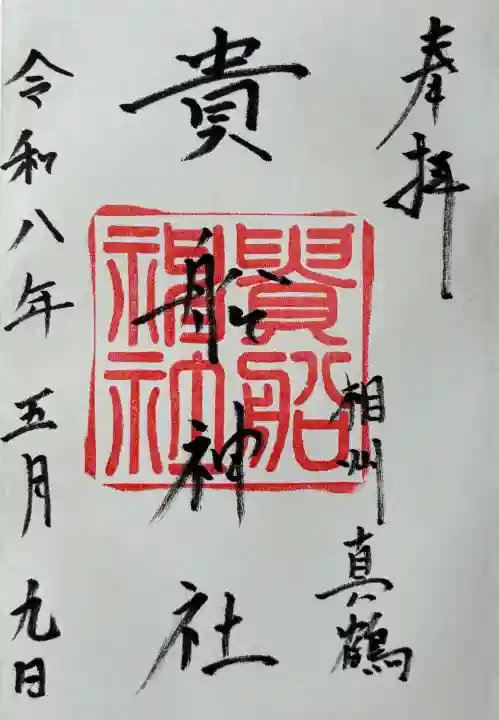 奉拝
相州真鶴
貴船神社
貴船
神社
令和八年五月九日